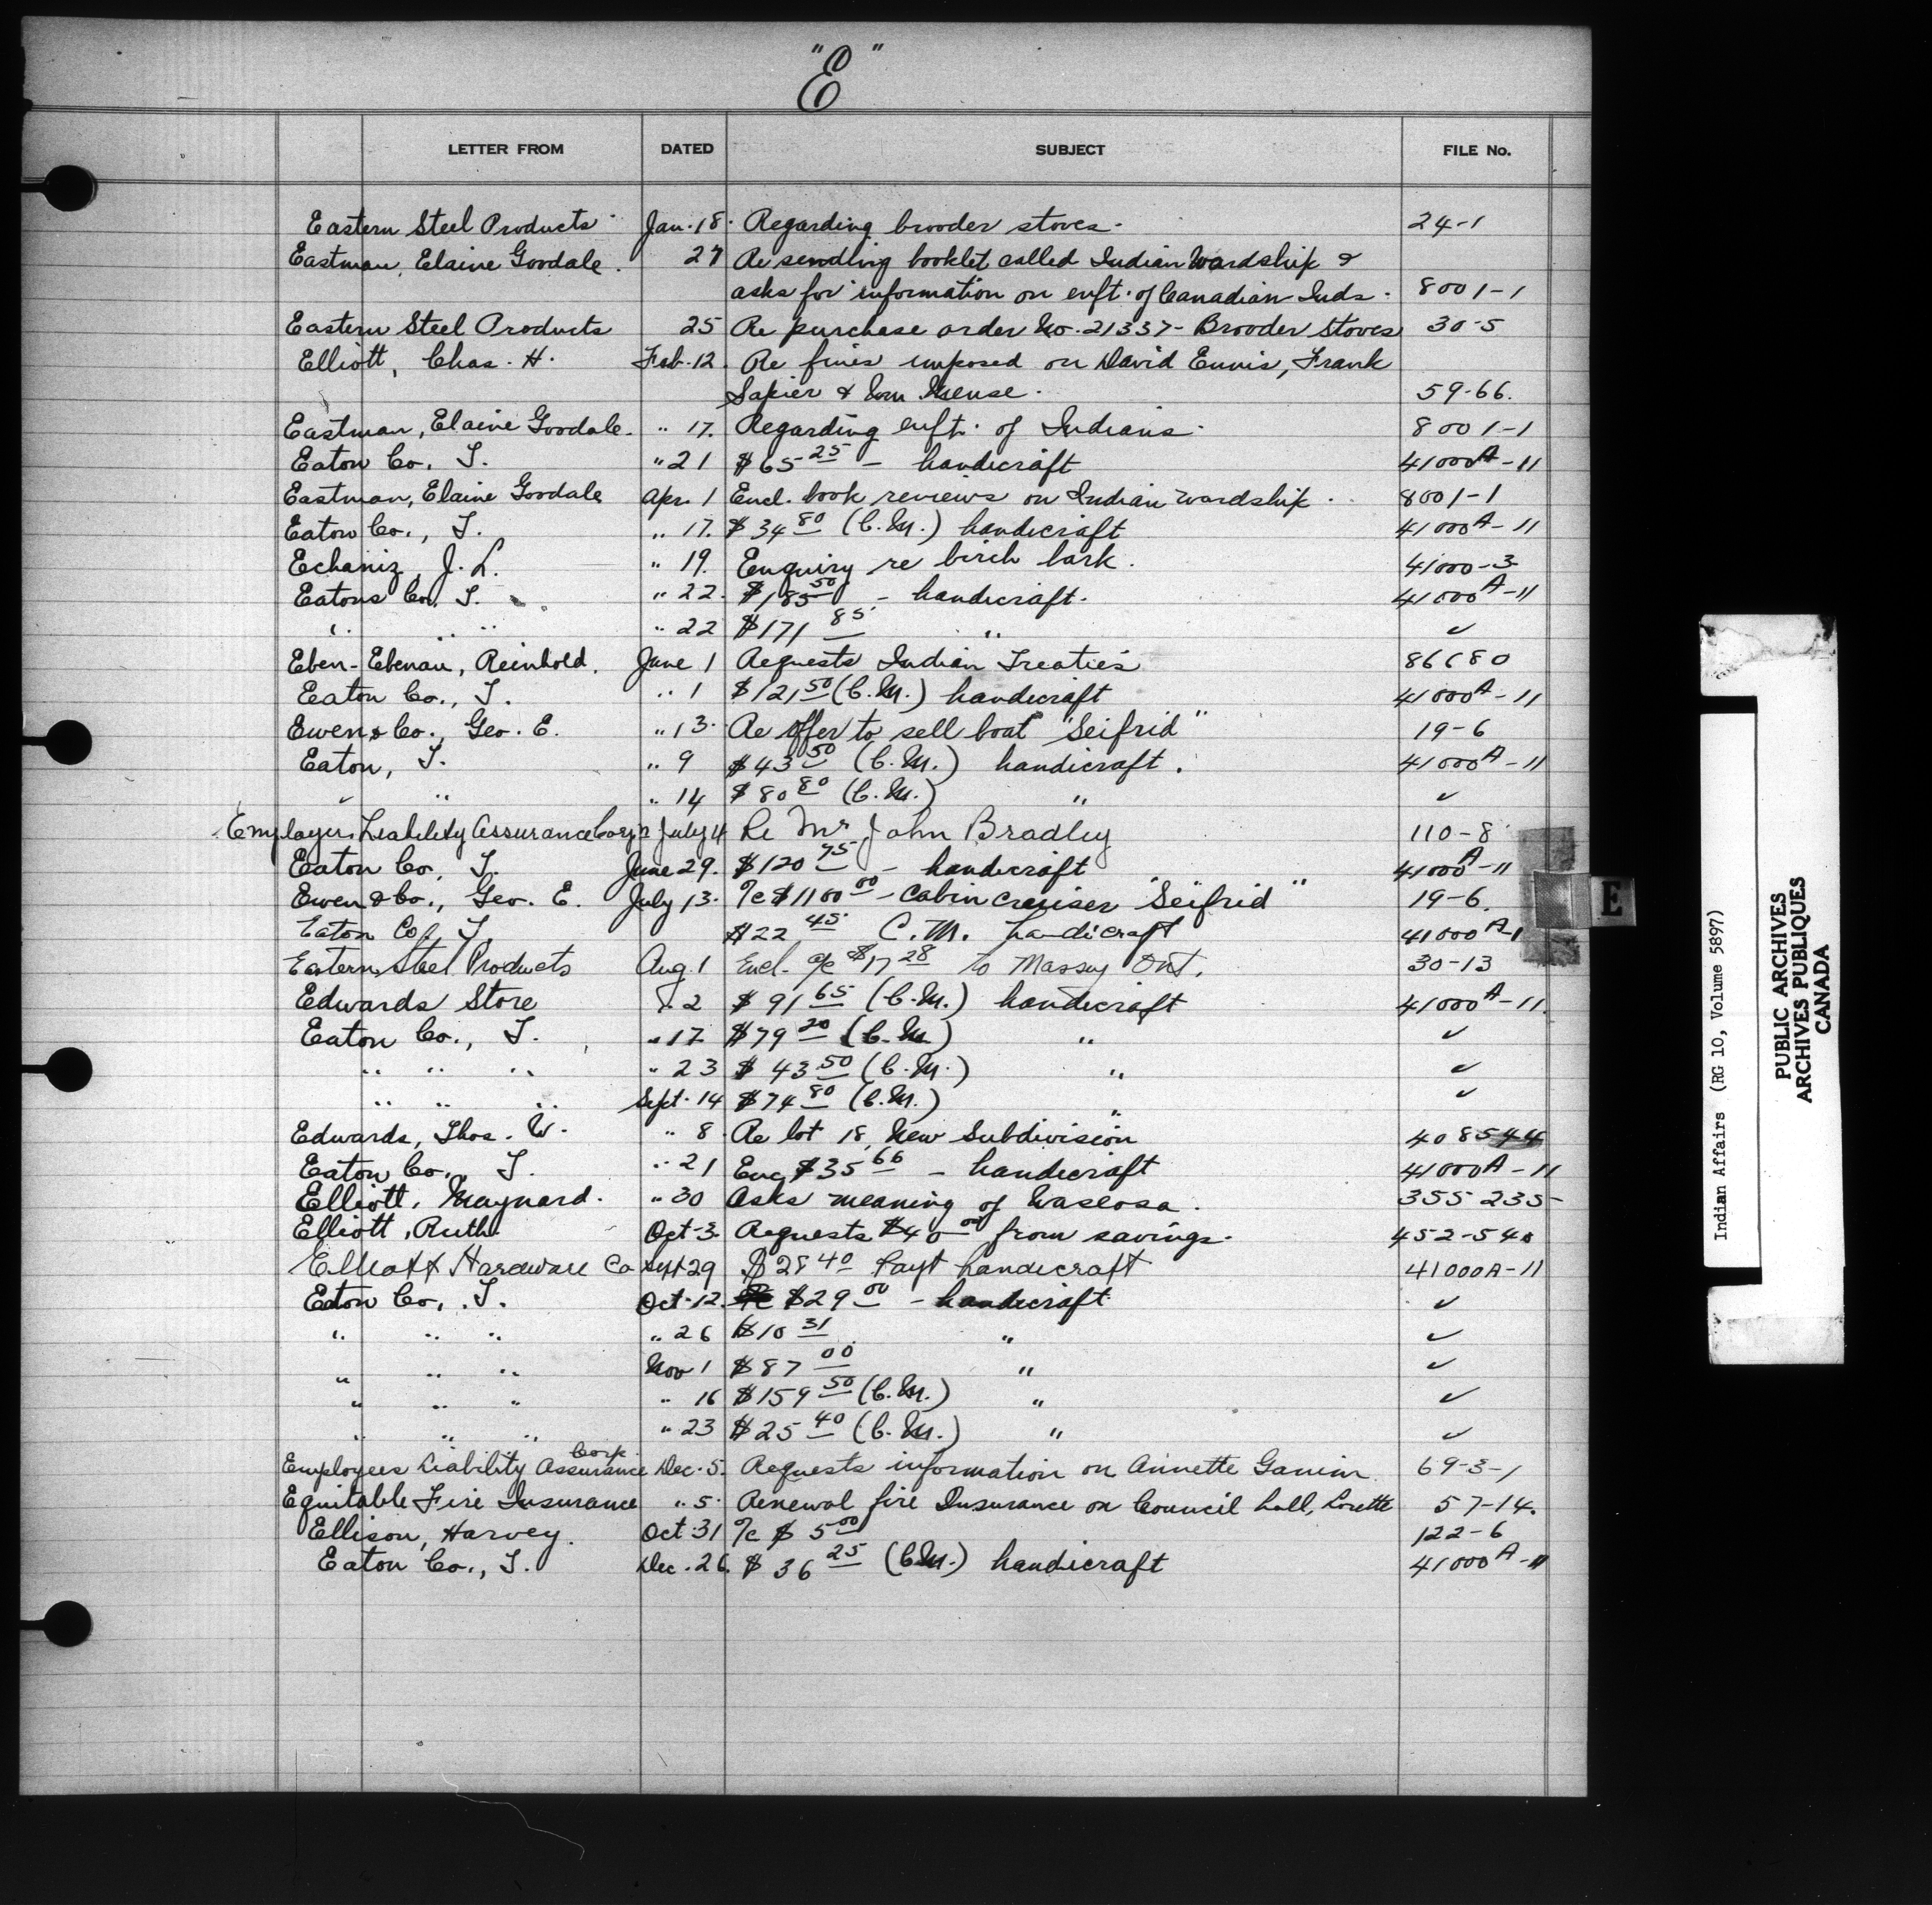 "E"
LETTER FROM DATED SUBJECT FILE No.
Eastern Steel Products Jan. 18. Regarding brooder stoves. 24-1
Eastman, Elaine Goodale. 27 Re sending booklet called Indian Wardship &
asks for information on enft. of Canadian Inds. 8001-1
Eastern Steel Products 25 Re purchase order No. 21337 - Brooder Stoves 30-5
Elliott, Chas. H. Feb. 12. Re fines imposed on David Ennis, Frank
Sapier & Wm 59-66.
Eastman, Elaine Goodale. " 17. Regarding enft. of Indians. 8001-1
Eaton Co. T. " 21 $65 25 - handicraft 41000A-11
Eastman, Elaine Goodale Apr. 1 Encl. book reviews on Indian Wardship. 8001-1
Eaton Co., T. " 17. $34 80 (C.M.) handicraft 41000A-11
Echaniz, J. L. " 19. Enquiry re birch bark. 41000-3
Eatons Co. T. " 22. $185 50 - handicraft. 41000A-11
" " " " 22 $171 85 " ✓
Eben-Ebenau, Reinhold. June 1 Requests Indian Treaties
Eaton Co., T. " 1 $121 50 (C.M.) handicraft 41000A-11
Ewen & Co., Geo. E. " 13. Re offer to sell boat "Seifrid" 19-6
Eaton, T. " 9 $43 50 (C.M.) handicraft. 41000A-11
✓ " " 14 $80 80 (C.M.) " ✓
Employers Liability Assurance Corp'n July 4 Re Mr John Bradley 110-8
Eaton Co. T. June 29. $120 75 - handicraft 41000A-11
Ewen & Co., Geo. E. July 13. %c $1100 00 - Cabin cruiser "Seifrid" 19-6.
Eaton Co., T. $22 45 C.M. handicraft 41000A-1
Eastern Steel Products Aug. 1 Encl. a/c $17 28 to Massey Ont. 30-13
Edwards Store " 2 $91 65 (C.M.) handicraft 41000A-11.
Eaton Co., T. " 17 $79 20 (C.M.) " ✓
" " " " 23 $43 50 (C.M.) " ✓
" " " Sept. 14 $74 80 (C.M.) " ✓
Edwards, Thos. W. " 8. Re lot 18, New Subdivision 408544
Eaton Co., T. " 21 Enc $35 66 - handicraft 41000A-11
Elliott, Maynard. " 30 Asks meaning of Waseosa. 355235-
Elliott, Ruth Oct. 3. Requests $40 00 from savings. 452-540
Elliott Hardware Co Sept 29 $28 40 Payt handicraft 41000A-11
Eaton Co., T. Oct. 12. $29 00 - handicraft ✓
" " " " 26 $10 31 " ✓
" " " Nov 1 $87 00 " ✓
" " " " 16 $159 50 (C.M.) " ✓
" " " " 23 $25 40 (C.M.) " ✓
Employees Liability Assurance Corp. Dec. 5. Requests information on Annette 69-3-1
Equitable Fire Insurance " 5. Renewal fire Insurance on Council hall, Lorette 57-14.
Ellison, Harvey. Oct. 31 %c $5 00 122-6
Eaton Co., T. Dec. 26. $36 25 (C.M.) handicraft 41000A-11
E
Indian Affairs (RG 10, Volume 5897)
PUBLIC ARCHIVES
ARCHIVES PUBLIQUES
CANADA